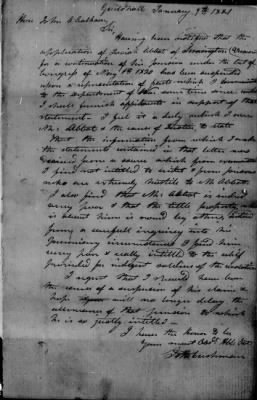 Guildhall January 9th 1821
Hone John C Calhoun
Sir
Having been notified that the
application of Josiah Abbot of Bennington
for a continuation of his pension under the act of
Congress of May 1st 1820 has been suspended
upon a representation of facts which I
to the department of War some time since
I shall furnish affidavits in support of that
statement. I feel it a duty which I owe
Mr Abbot & the cause of to state
that the information from which I made
the statement contained in that letter was
received from a source which from
I find not entitled to & from persons
who are extremely hostile to Mr Abbot.
I also find that Mr Abbot is indeed
very poor & that the little property
is about him is owned by others.
from a carefull enquiry into his
circumstances I find him
very poor & really intitled to the relief
provided for indigent soldiers of the
I regret that I should have been
the cause of a suspension of his claim &
hope you will no longer delay the
allowance of that pension to which
he is so justly intitled
I have the honor to be
Your most Obdt Hbl Svt
Cushman